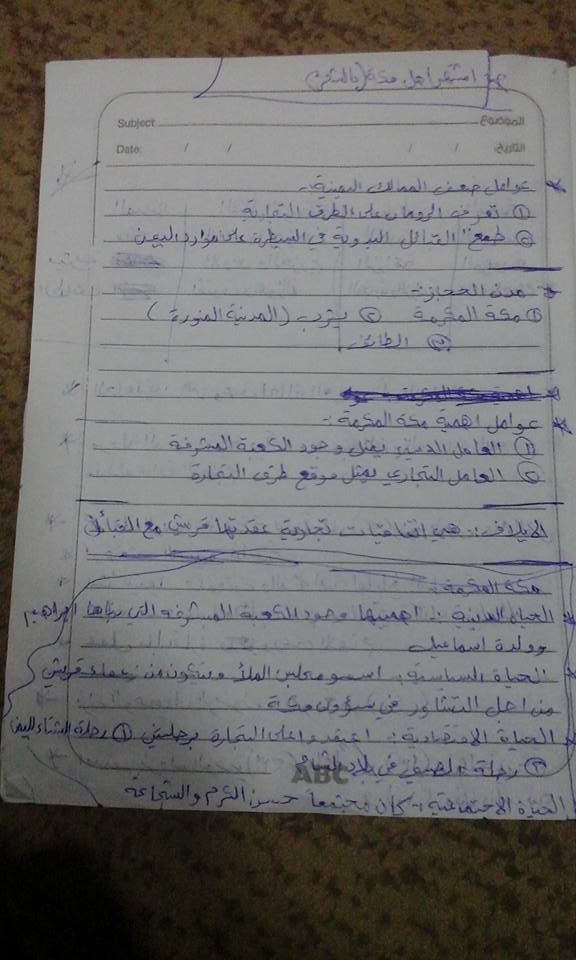 اشتهر اهل مكة (بالشعر)
Subject الموضوع
Date: / / / / التاريخ:
* عوامل ضعف الممالك اليمنية:-
① تعرف الرومان على الطرق التجارية
② طمع القبائل البدوية في السيطرة على موارد اليمن
* مدن الحجاز:-
① مكة المكرمة ② يثرب (المدنية المنورة)
③ الطائف
* عوامل اهمية مكة المكرمة:-
① العامل الديني يمثل وجود الكعبة المشرفة
② العامل التجاري يمثل موقع طرق التجارة
الايلاف:- هي اتفاقيات تجارية عقدتها قريش مع القبائل
مكة المكرمة
* الحياة الدينية:- اهميتها وجود الكعبة المشرفة التي بناها ابراهيم
وولدة اسماعيل
* الحياة السياسية:- اسسو مجلس الملأ ويتكون من زعماء قريش
من اجل التشاور في شؤون مكة
* الحياة الاقتصادية:- اعتمدوا على التجارة برحلتي ① رحلة الشتاء لليمن
② رحلة الصيف في بلاد الشام
ABC
الحياة الاجتماعية:- كان مجتمعا حسن الكرم والشجاعة